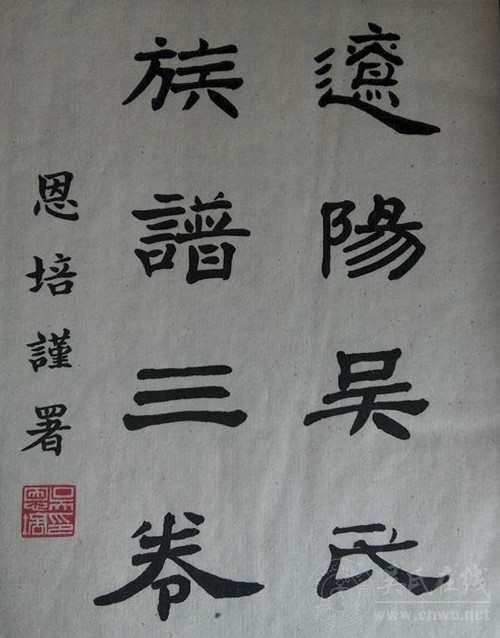 遼陽吴氏
族譜三卷
恩培謹署
吴印恩培
吴氏在线
www.cnwu.net